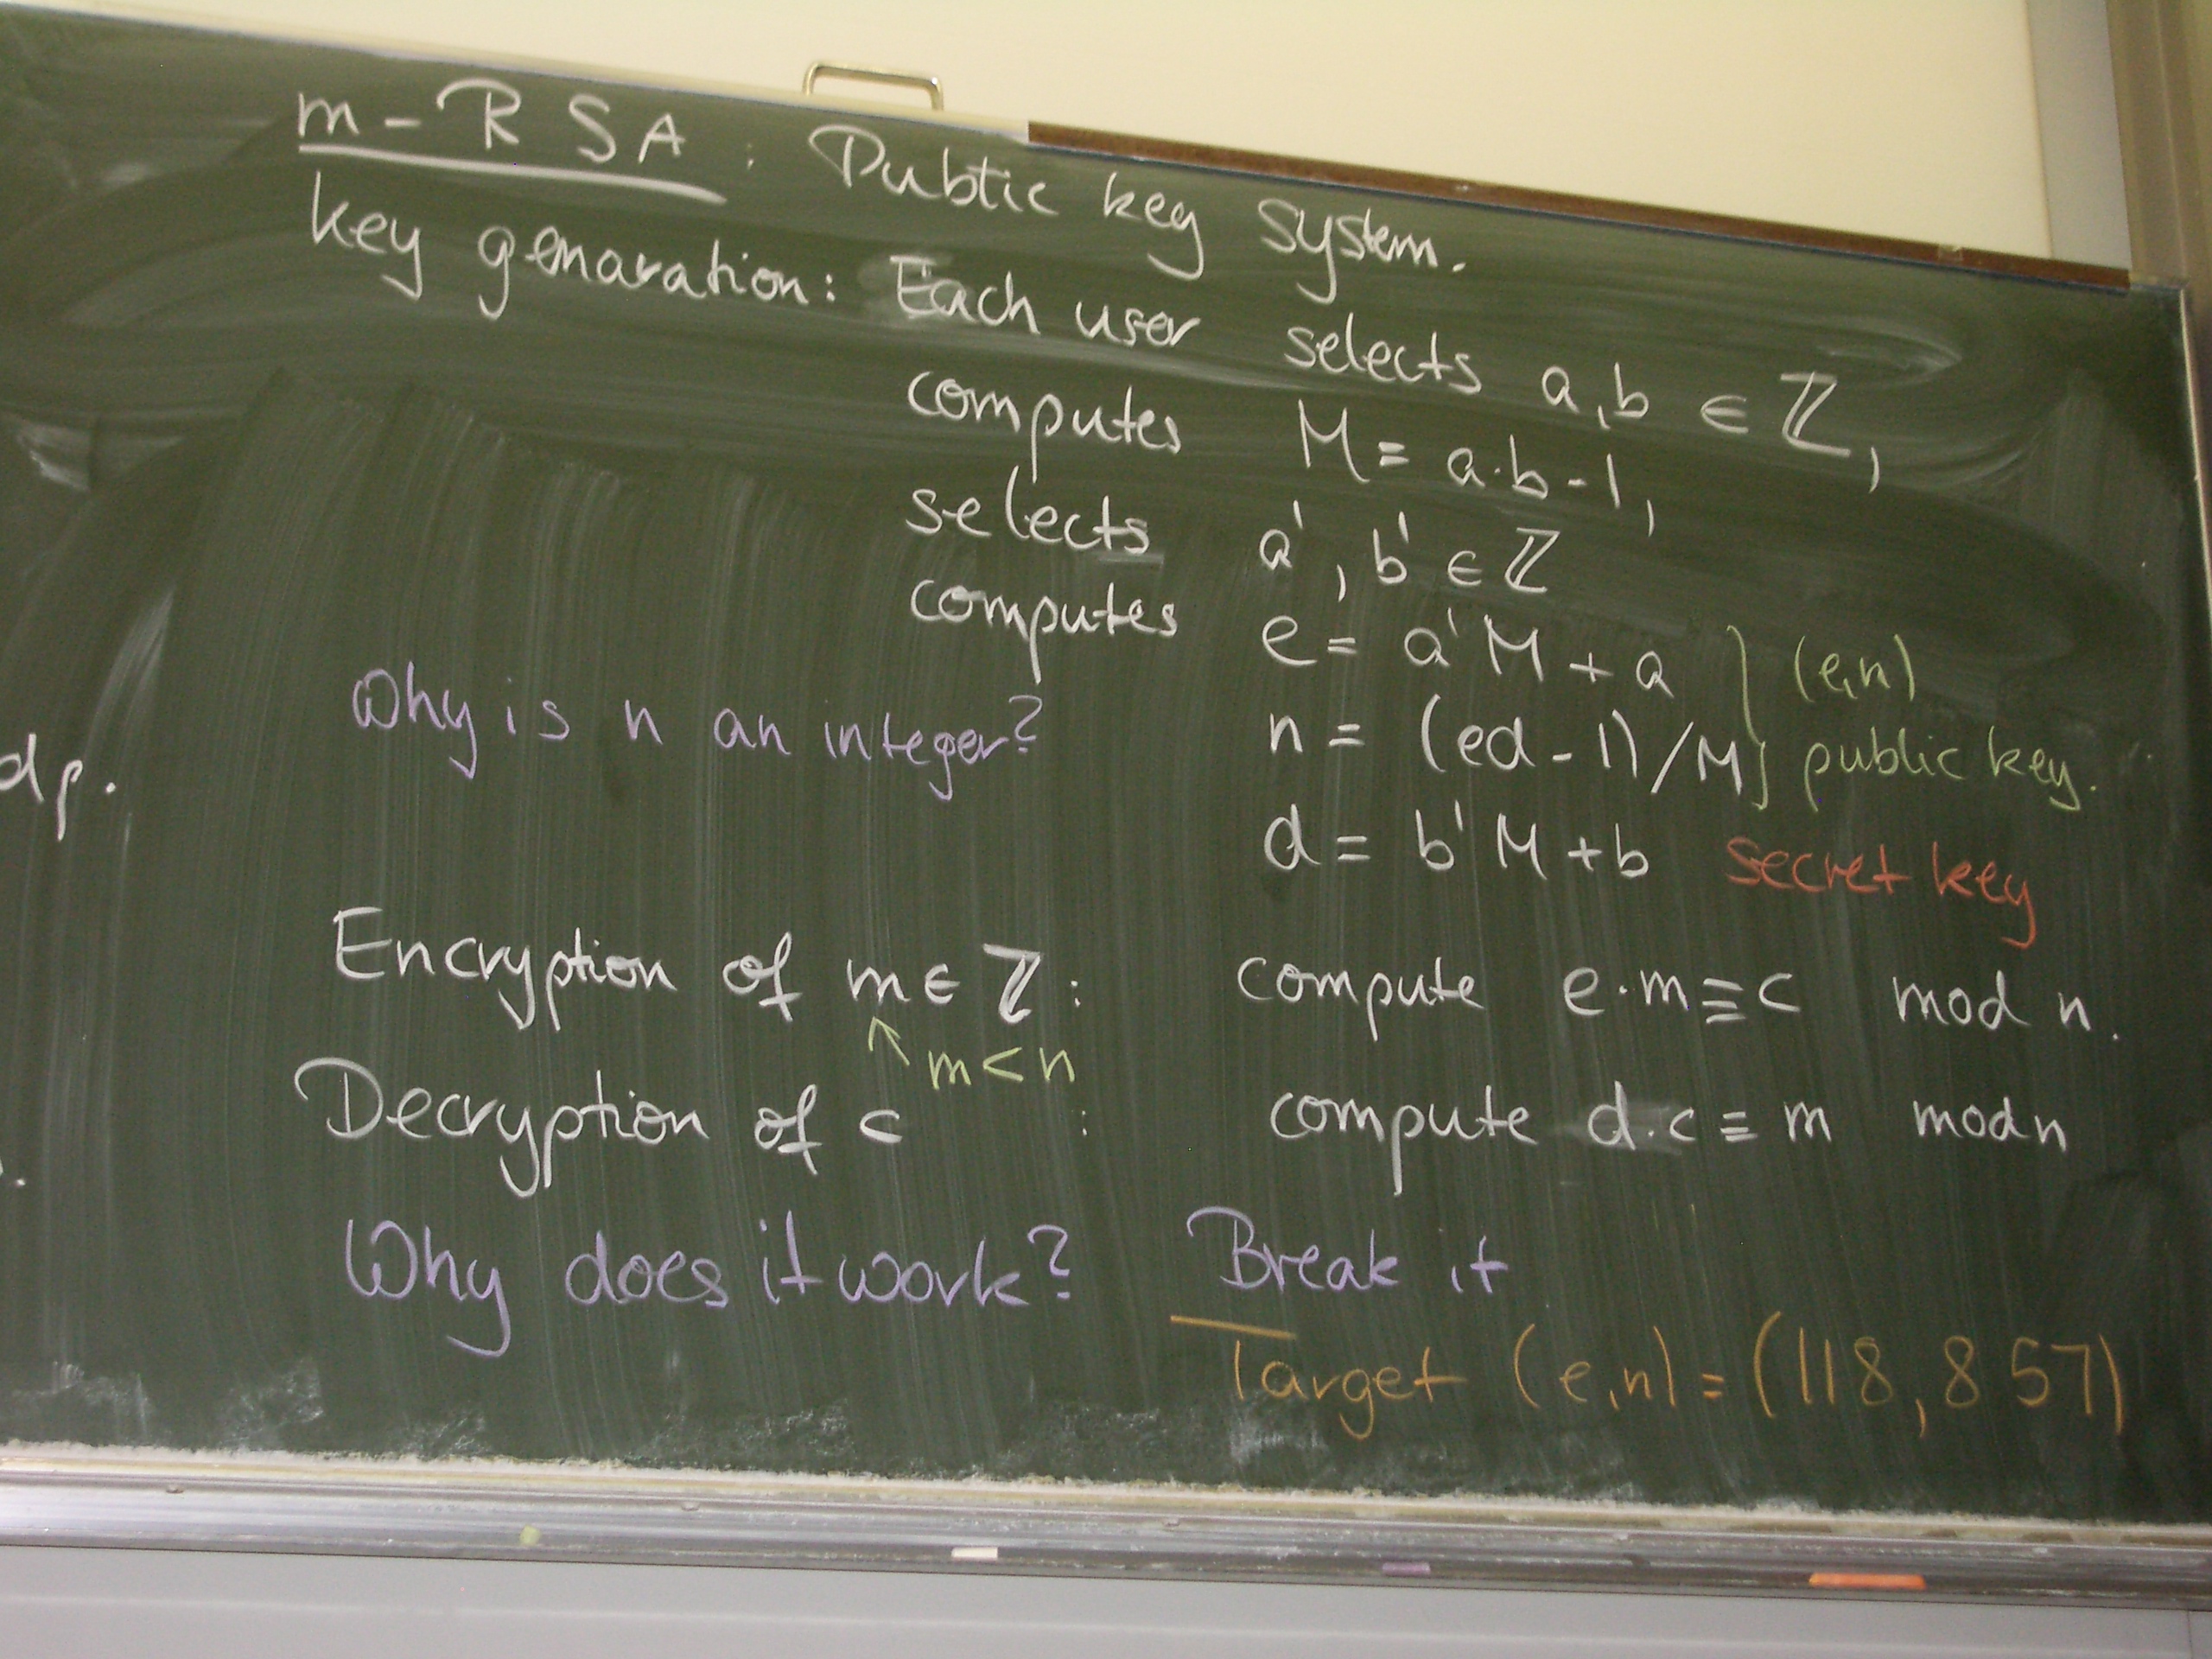 m-RSA : Public key system.
key genaration: Each user selects a, b ∈ ℤ,
computes M = a·b-1,
selects a', b' ∈ ℤ
computes e = a'M + a
(e,n)
Why is n an integer?
n = (ed-1)/M
public key.
dp.
d = b'M + b secret key
Encryption of m ∈ ℤ : compute e·m ≡ c mod n.
↖ m < n
Decryption of c : compute d·c ≡ m mod n
Why does it work? Break it
Target (e,n) = (118, 857)